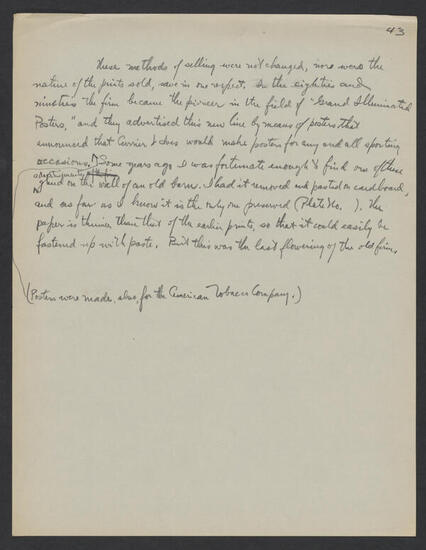 43
These methods of selling were not changed, nore were the
nature of the prints sold, save in one respect. In the eighties and
nineties the firm became the pioneer in the field of "Grand Illuminated
Posters," and they advertised this new line by means of posters that
announced that Currier & Ives would make posters for any and all sporting
occasions. Some years ago I was fortunate enough to find one of these
found on the wall of an old barn. I had it removed and pasted on cardboard,
and as far as I know it is the only one preserved (Plate No. ). The
paper is thinner than that of the earlier prints, so that it could easily be
fastened up with paste. But this was the last flowering of the old firm.
(Posters were made, also, for the American Tobacco Company.)